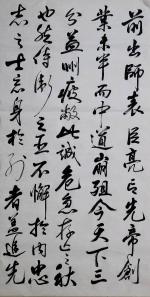 前出師表臣亮言先帝創
業未半而中道崩殂今天下三
分益州疲敝此誠危急存亡之秋
也然侍衛之臣不懈於內忠
志之士忘身於外者蓋追先